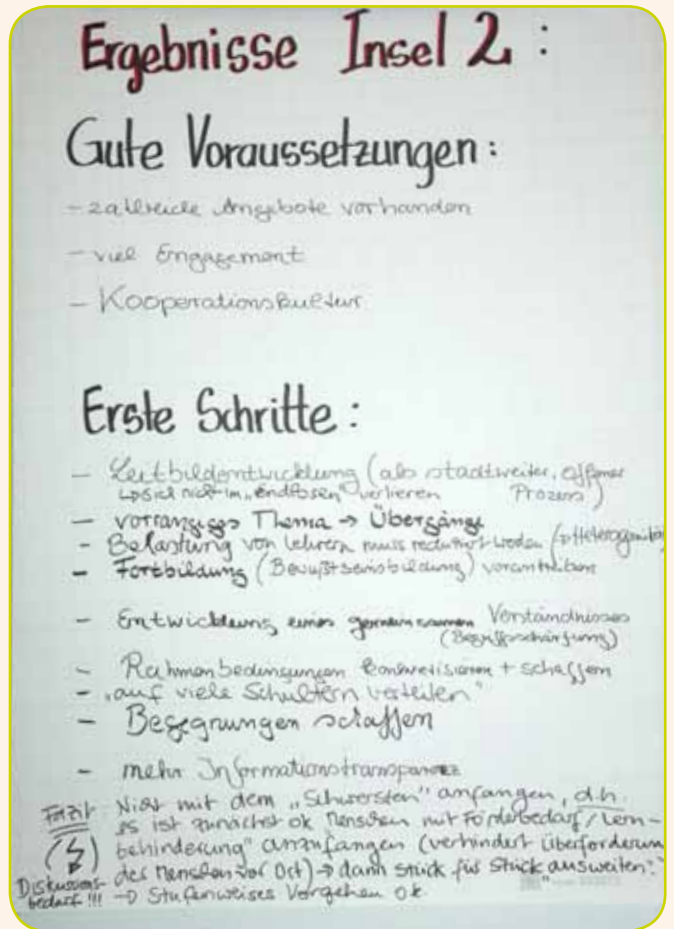 Ergebnisse Insel 2 :
Gute Voraussetzungen :
- zahlreiche Angebote vorhanden
- viel Engagement
- Kooperationskultur
Erste Schritte :
- Leitbildentwicklung (als stadtweiter, offener
↳ sich nicht im „endlosen" verlieren Prozess)
- vorrangiges Thema → Übergänge
- Belastung von Lehrern muss reduziert werden
- Fortbildung (Bewußtseinsbildung) vorantreiben
- Entwicklung eines gemeinsamen Verständnisses
(Begriffsschärfung)
- Rahmenbedingungen konkretisieren + schaffen
- „auf viele Schultern verteilen"
- Begegnungen schaffen
- mehr Informationstransparenz
Fazit Nicht mit dem „Schwersten" anfangen, d.h.
es ist zunächst ok Menschen mit Förderbedarf / Lern-
behinderung" anzufangen (verhindert Überforderun
der Menschen vor Ort) → dann Stück für Stück ausweiten!"
Diskussions-
bedarf !!! → Stufenweises Vorgehen ok.